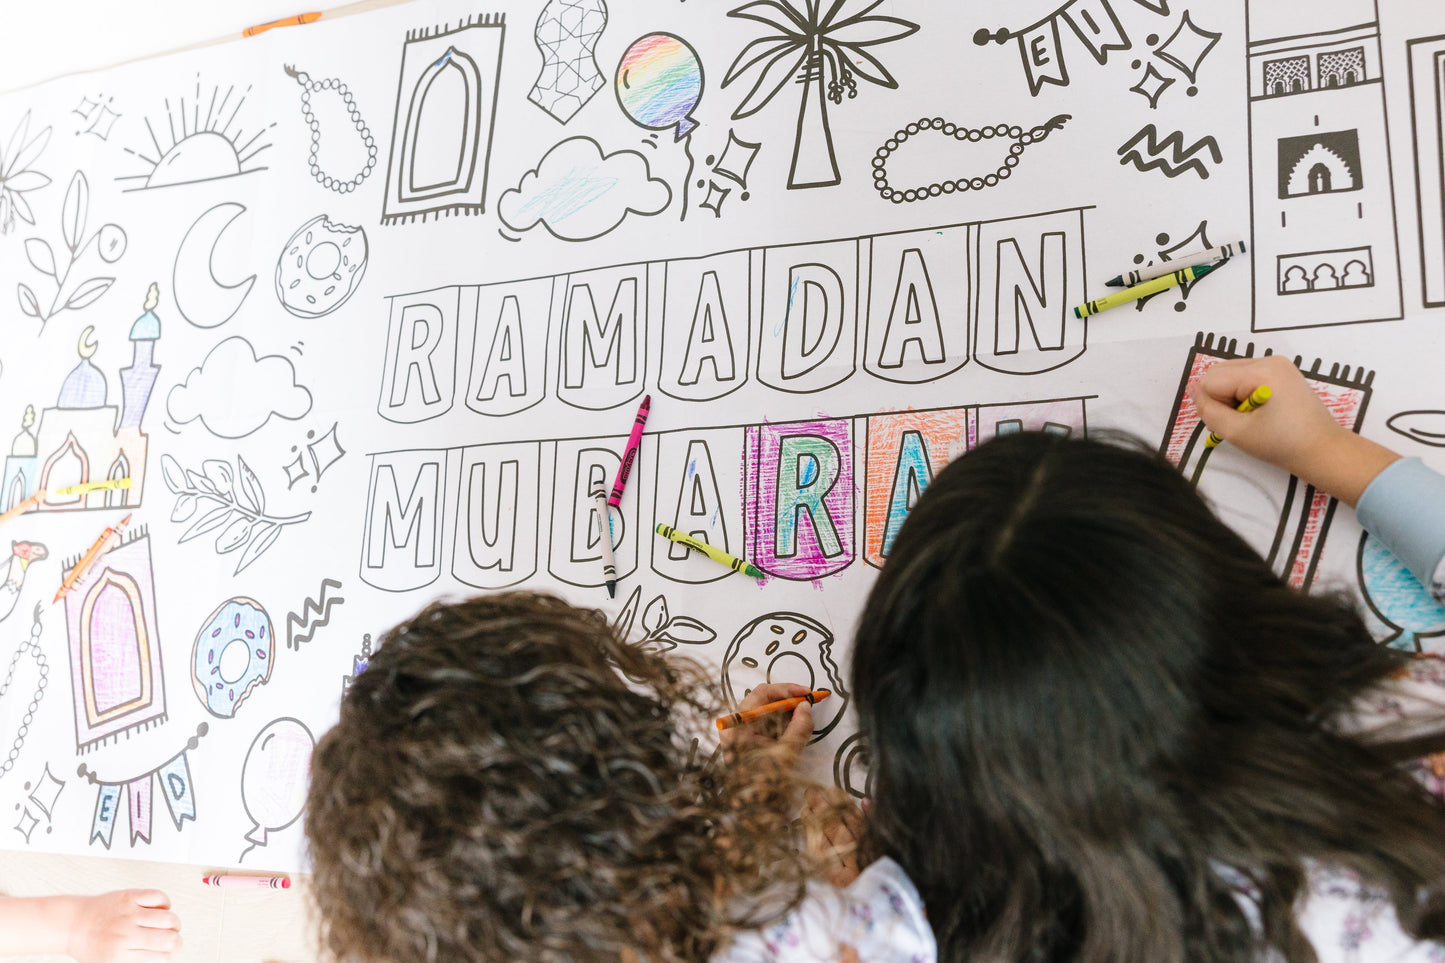 EI
RAMADAN
MUBARA
EID